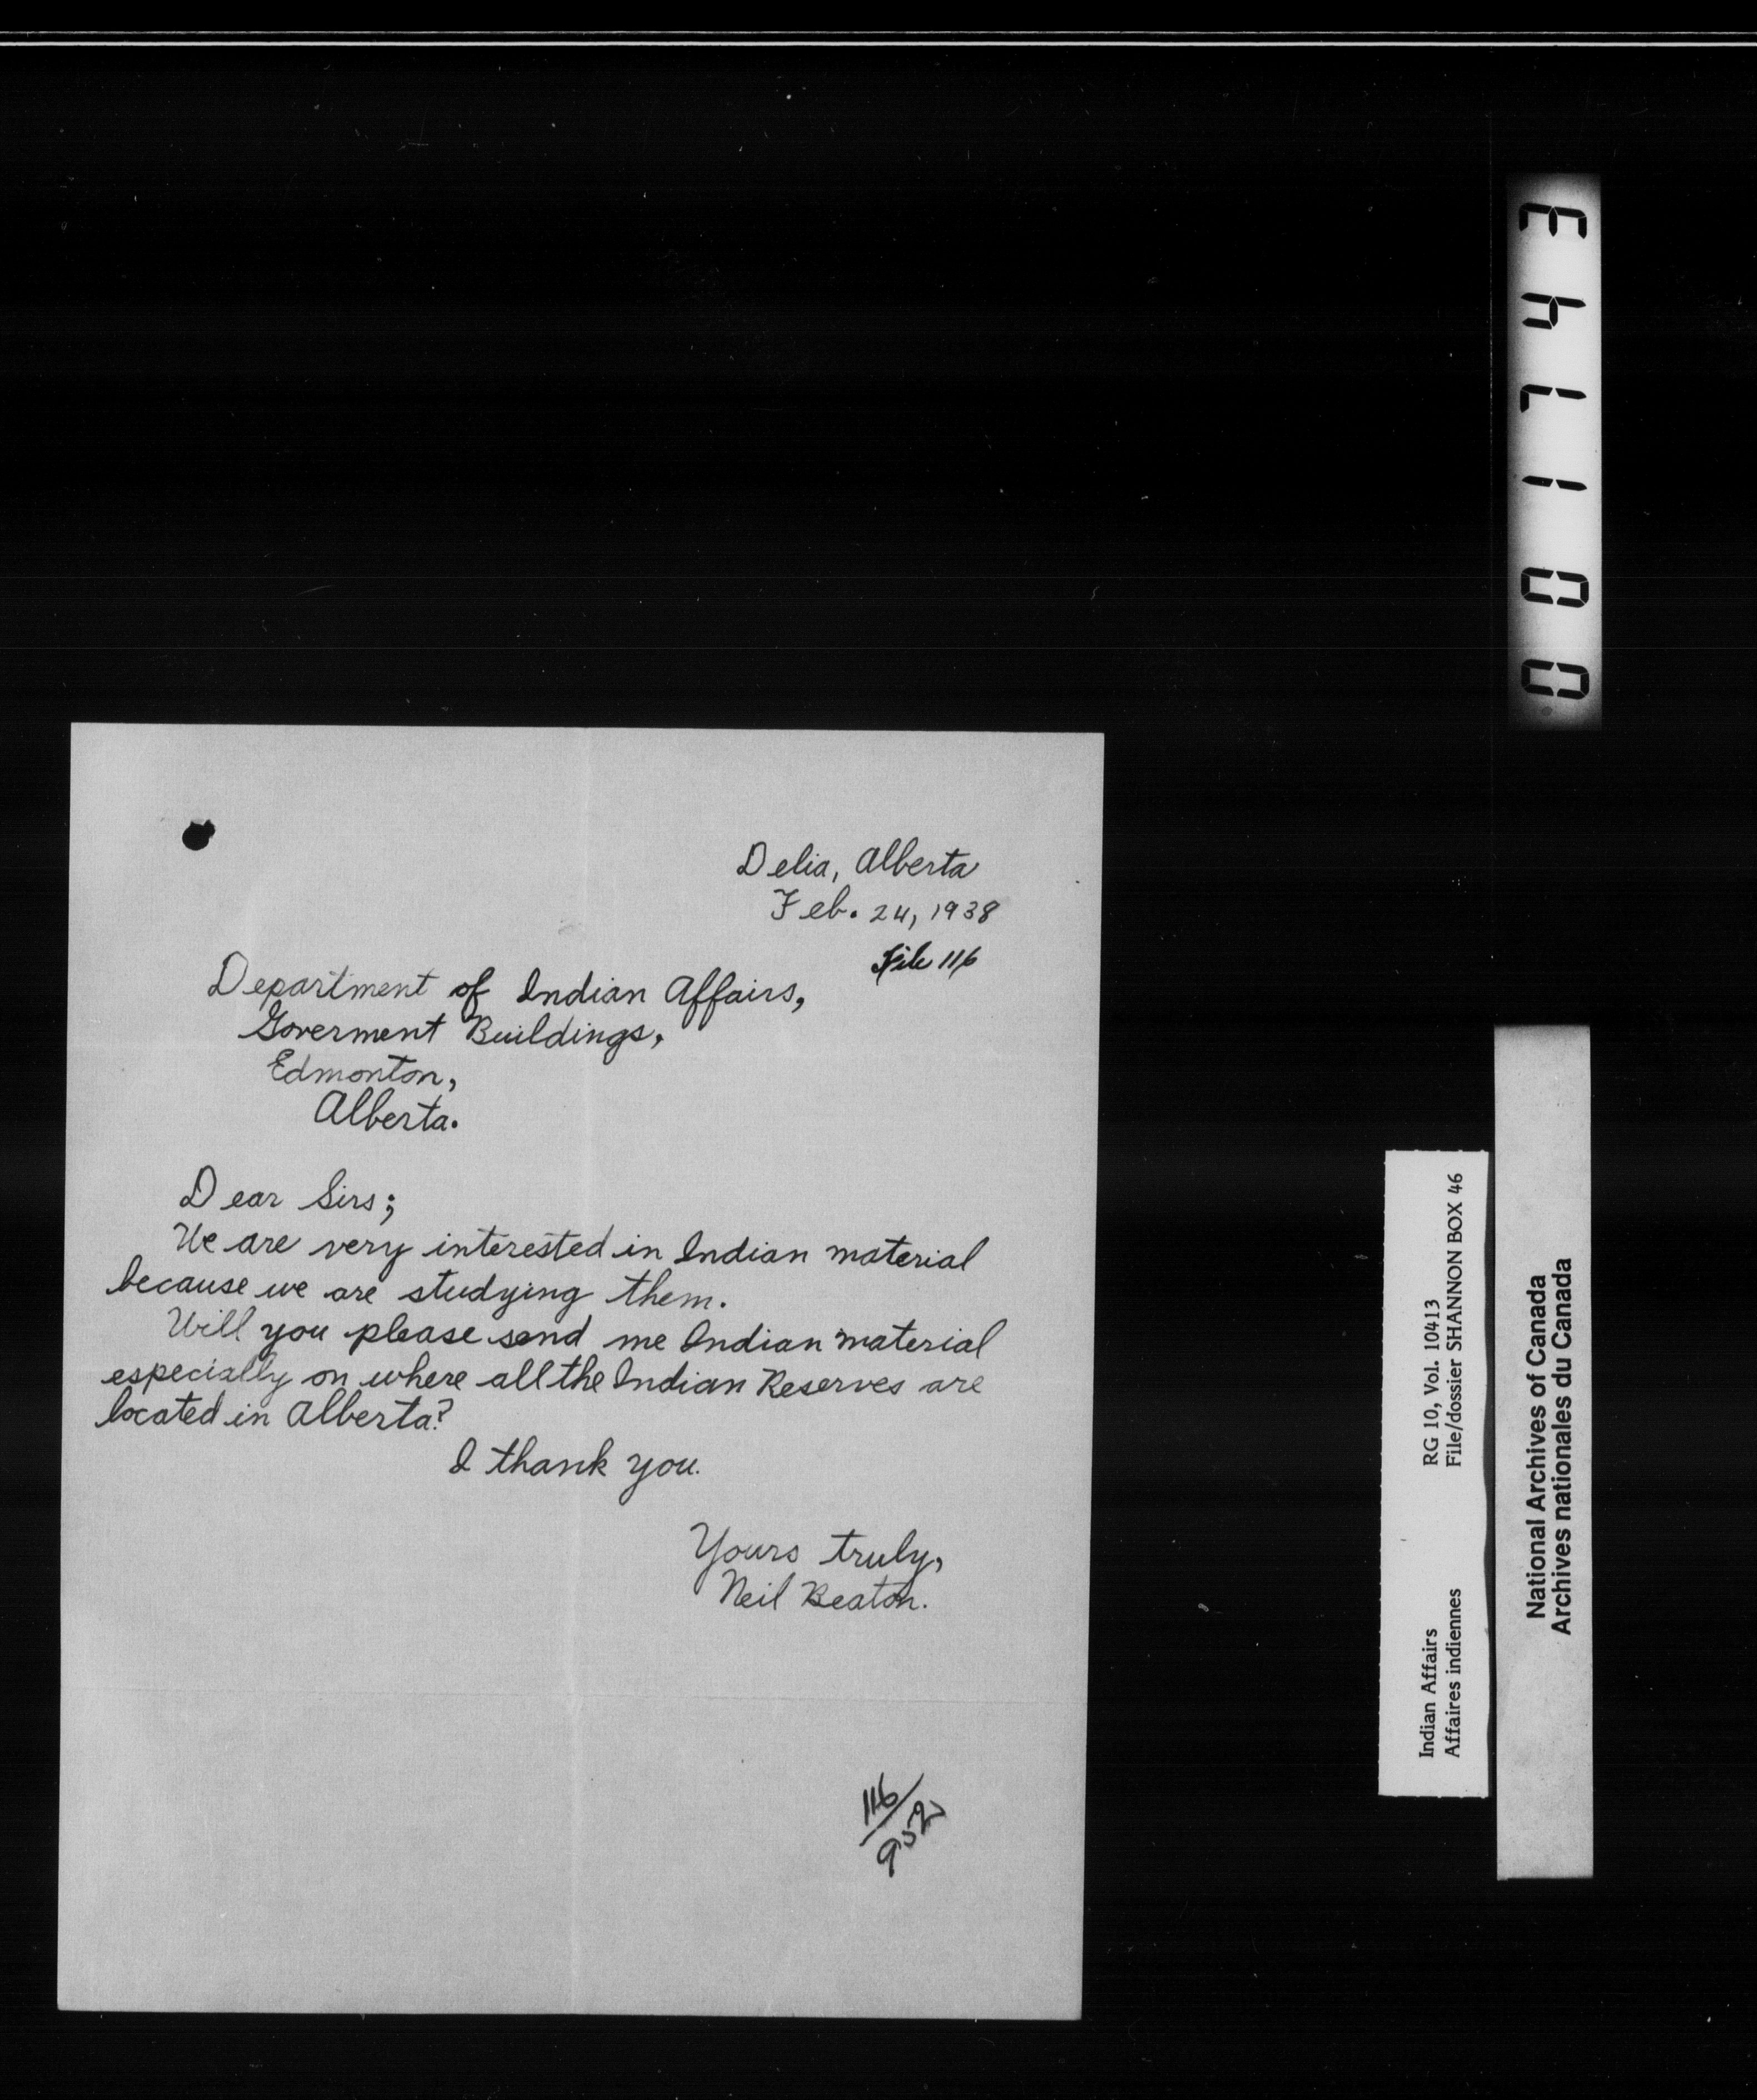 Delia, Alberta
Feb. 24, 1938
File 116
Department of Indian Affairs,
Goverment Buildings,
Edmonton,
Alberta.
Dear Sirs;
We are very interested in Indian material
because we are studying them.
Will you please send me Indian material
especially on where all the Indian Reserves are
located in Alberta?
I thank you.
Yours truly,
Neil Beaton.
116/952
001743
Indian Affairs RG 10, Vol. 10413
Affaires indiennes File/dossier SHANNON BOX 46
National Archives of Canada
Archives nationales du Canada